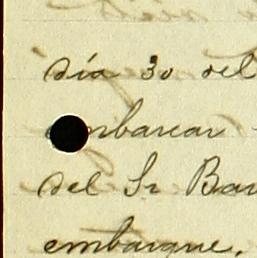 día 30 del
nbarcar
del Sr Bar
embarque,